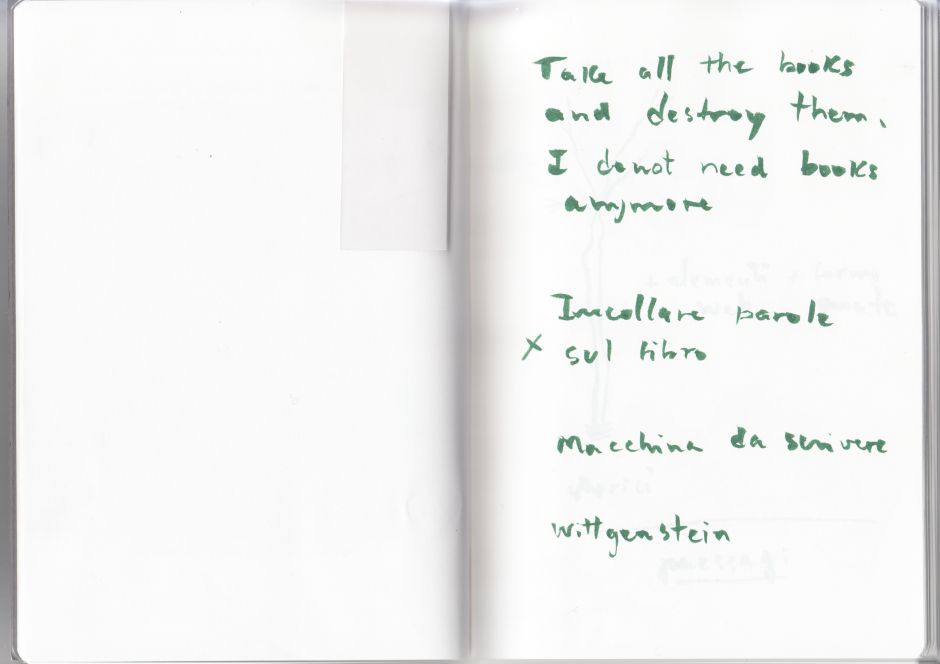 Take all the books
and destroy them.
I donot need books
anymore
Incollare parole
x sul libro
macchina da scrivere
wittgenstein